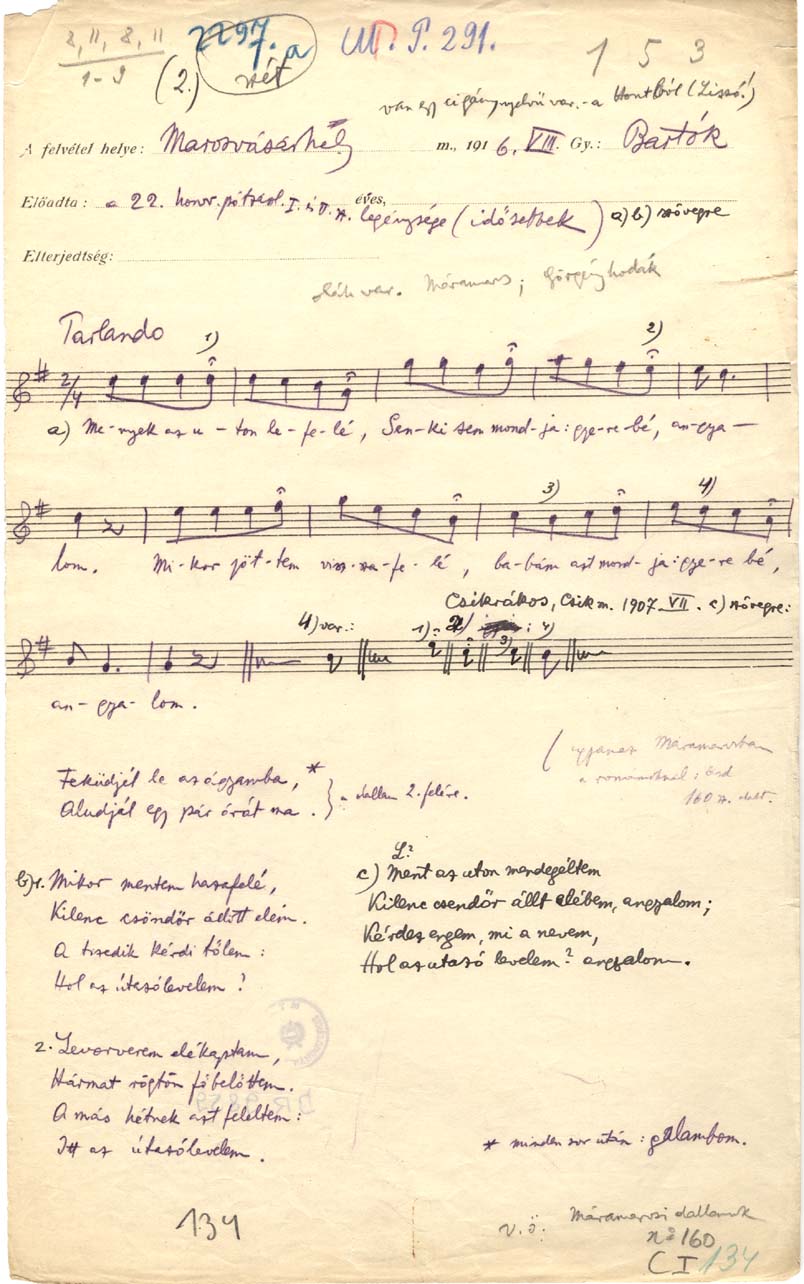 8, 11, 8, 11
1-9
2297.
7.a
M. P. 291.
1 5 3
(2.)
van egy cigánynyelvü var.-a Hontból (Lissó!)
A felvétel helye: Marosvásárhely m., 1916. VIII. Gy.: Bartók
Előadta: a 22. honv. pótzlóal. I. és II. sz. éves, legénysége (idősebbek) a) b) szövegre
Elterjedtség:
oláh var. Máramaros; Görgényhodák
Parlando
1) 2)
2/4
a) Me-nyek az u-ton le-fe-lé, Sen-ki sem mond-ja: gye-re-bé, an-gya-
3) 4)
lom. Mi-kor jöt-tem visz-sza-fe-lé, ba-bám azt mond-ja: gye-re bé,
Csikrákos, Csik m. 1907. VII. c) szövegre:
4) var.: 1) 3)
an-gya-lom.
ugyanez Máramarosban
a románoknál: lásd
160 sz. dalt.
Feküdjél le az ágyamba, *
Aludjál egy pár órát ma. } a dallam 2. felére.
b) 1. Mikor mentem hazafelé,
Kilenc csöndőr állott elém.
A tizedik kérdi tőlem:
Hol az útazólevelem?
L?
c) Ment az uton mendegéltem
Kilenc csendőr állt elébem, angyalom;
Kérdez engem, mi a nevem,
Hol az utazó levelem? angyalom.
2. Levorverem elékaptam,
Hármat rögtön főbelőttem.
A más hétnek azt feleltem:
Itt az útazólevelem.
* minden sor után: galambom.
134
V. ö. Máramarosi dallamok
nº 160
C I 134